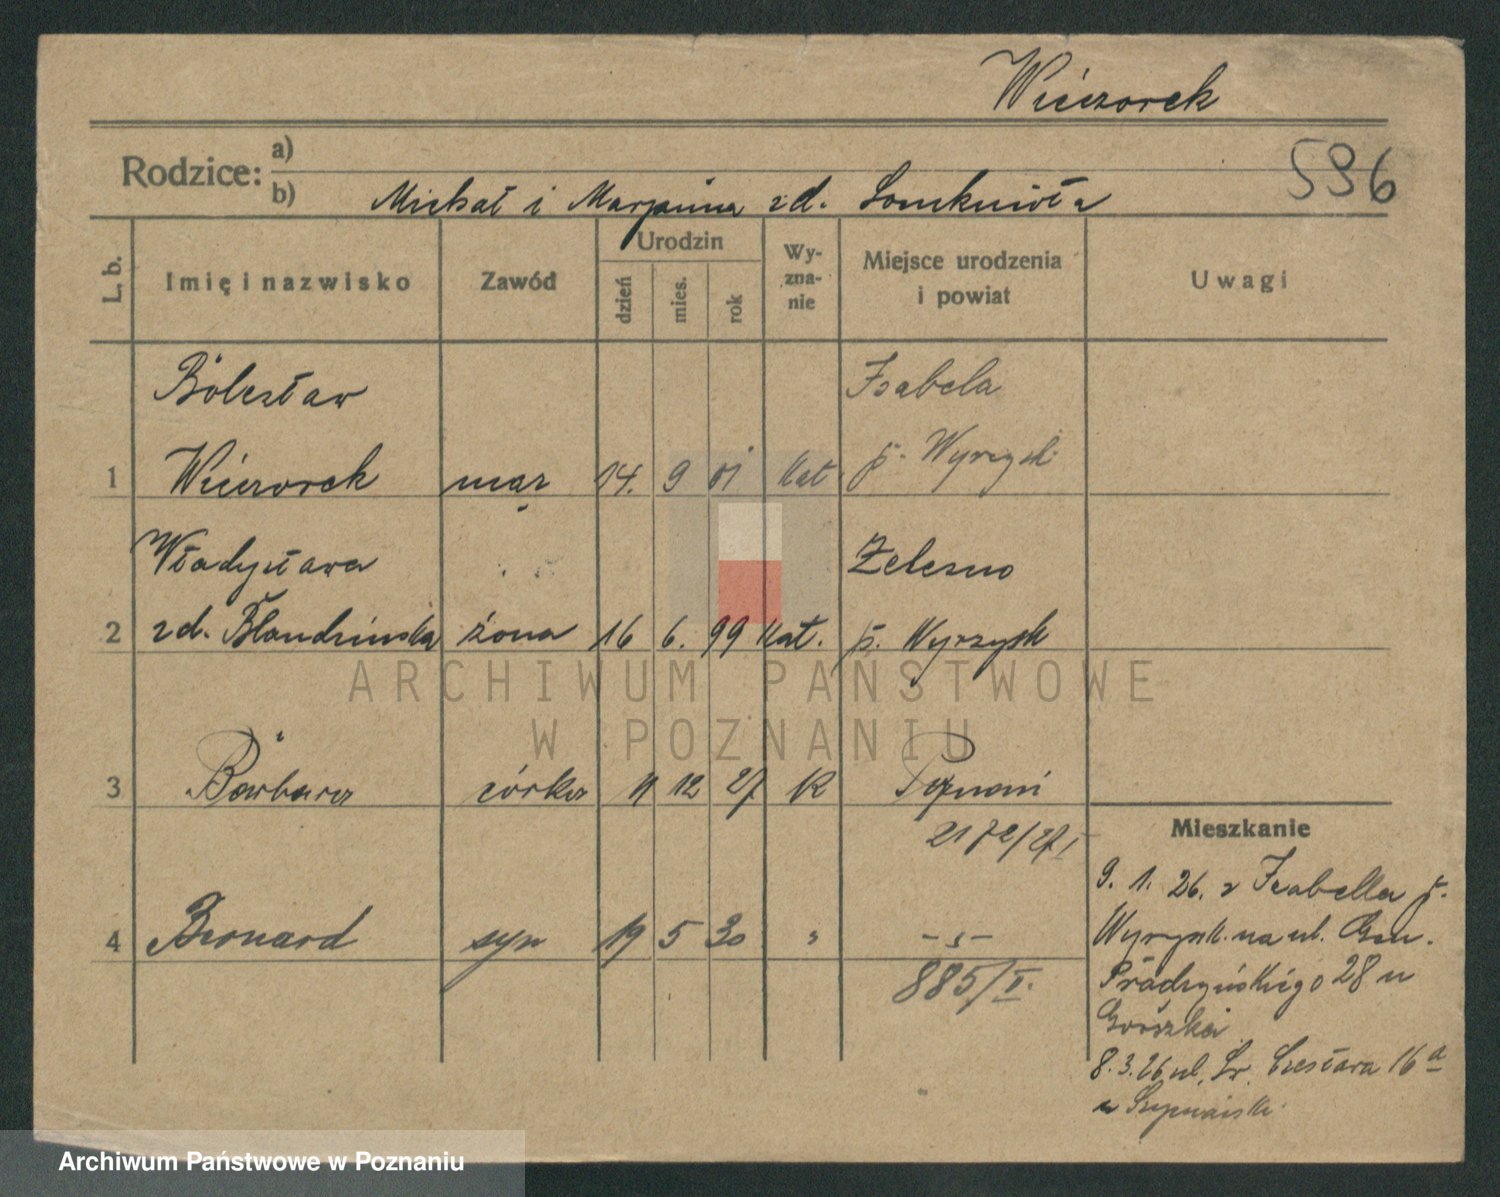 Wieczorek
596
Rodzice: a)
b) Michał i Marjanna zd.
L. b. Imię i nazwisko Zawód Urodzin dzień mies. rok Wyznanie Miejsce urodzenia i powiat Uwagi
Bolesław Isabela
1 Wieczorek mąż 14. 9 01 kat p. Wyrzysk
Władysława Żelazno
2 zd. Błandzińska żona 16 6. 99 kat. p. Wyrzysk
3 Barbara córka 11 12 27 K Poznań
2172/27 I
Mieszkanie
9. 1. 26. z Izabella p.
4 Bernard syn 19 5 30 " -"-
Wyrzysk. na ul. Gen.
885/II.
Prądzyńskiego 28 u
8. 3. 26 ul. Św. Czesława 16a
u
ARCHIWUM PAŃSTWOWE
W POZNANIU
Archiwum Państwowe w Poznaniu